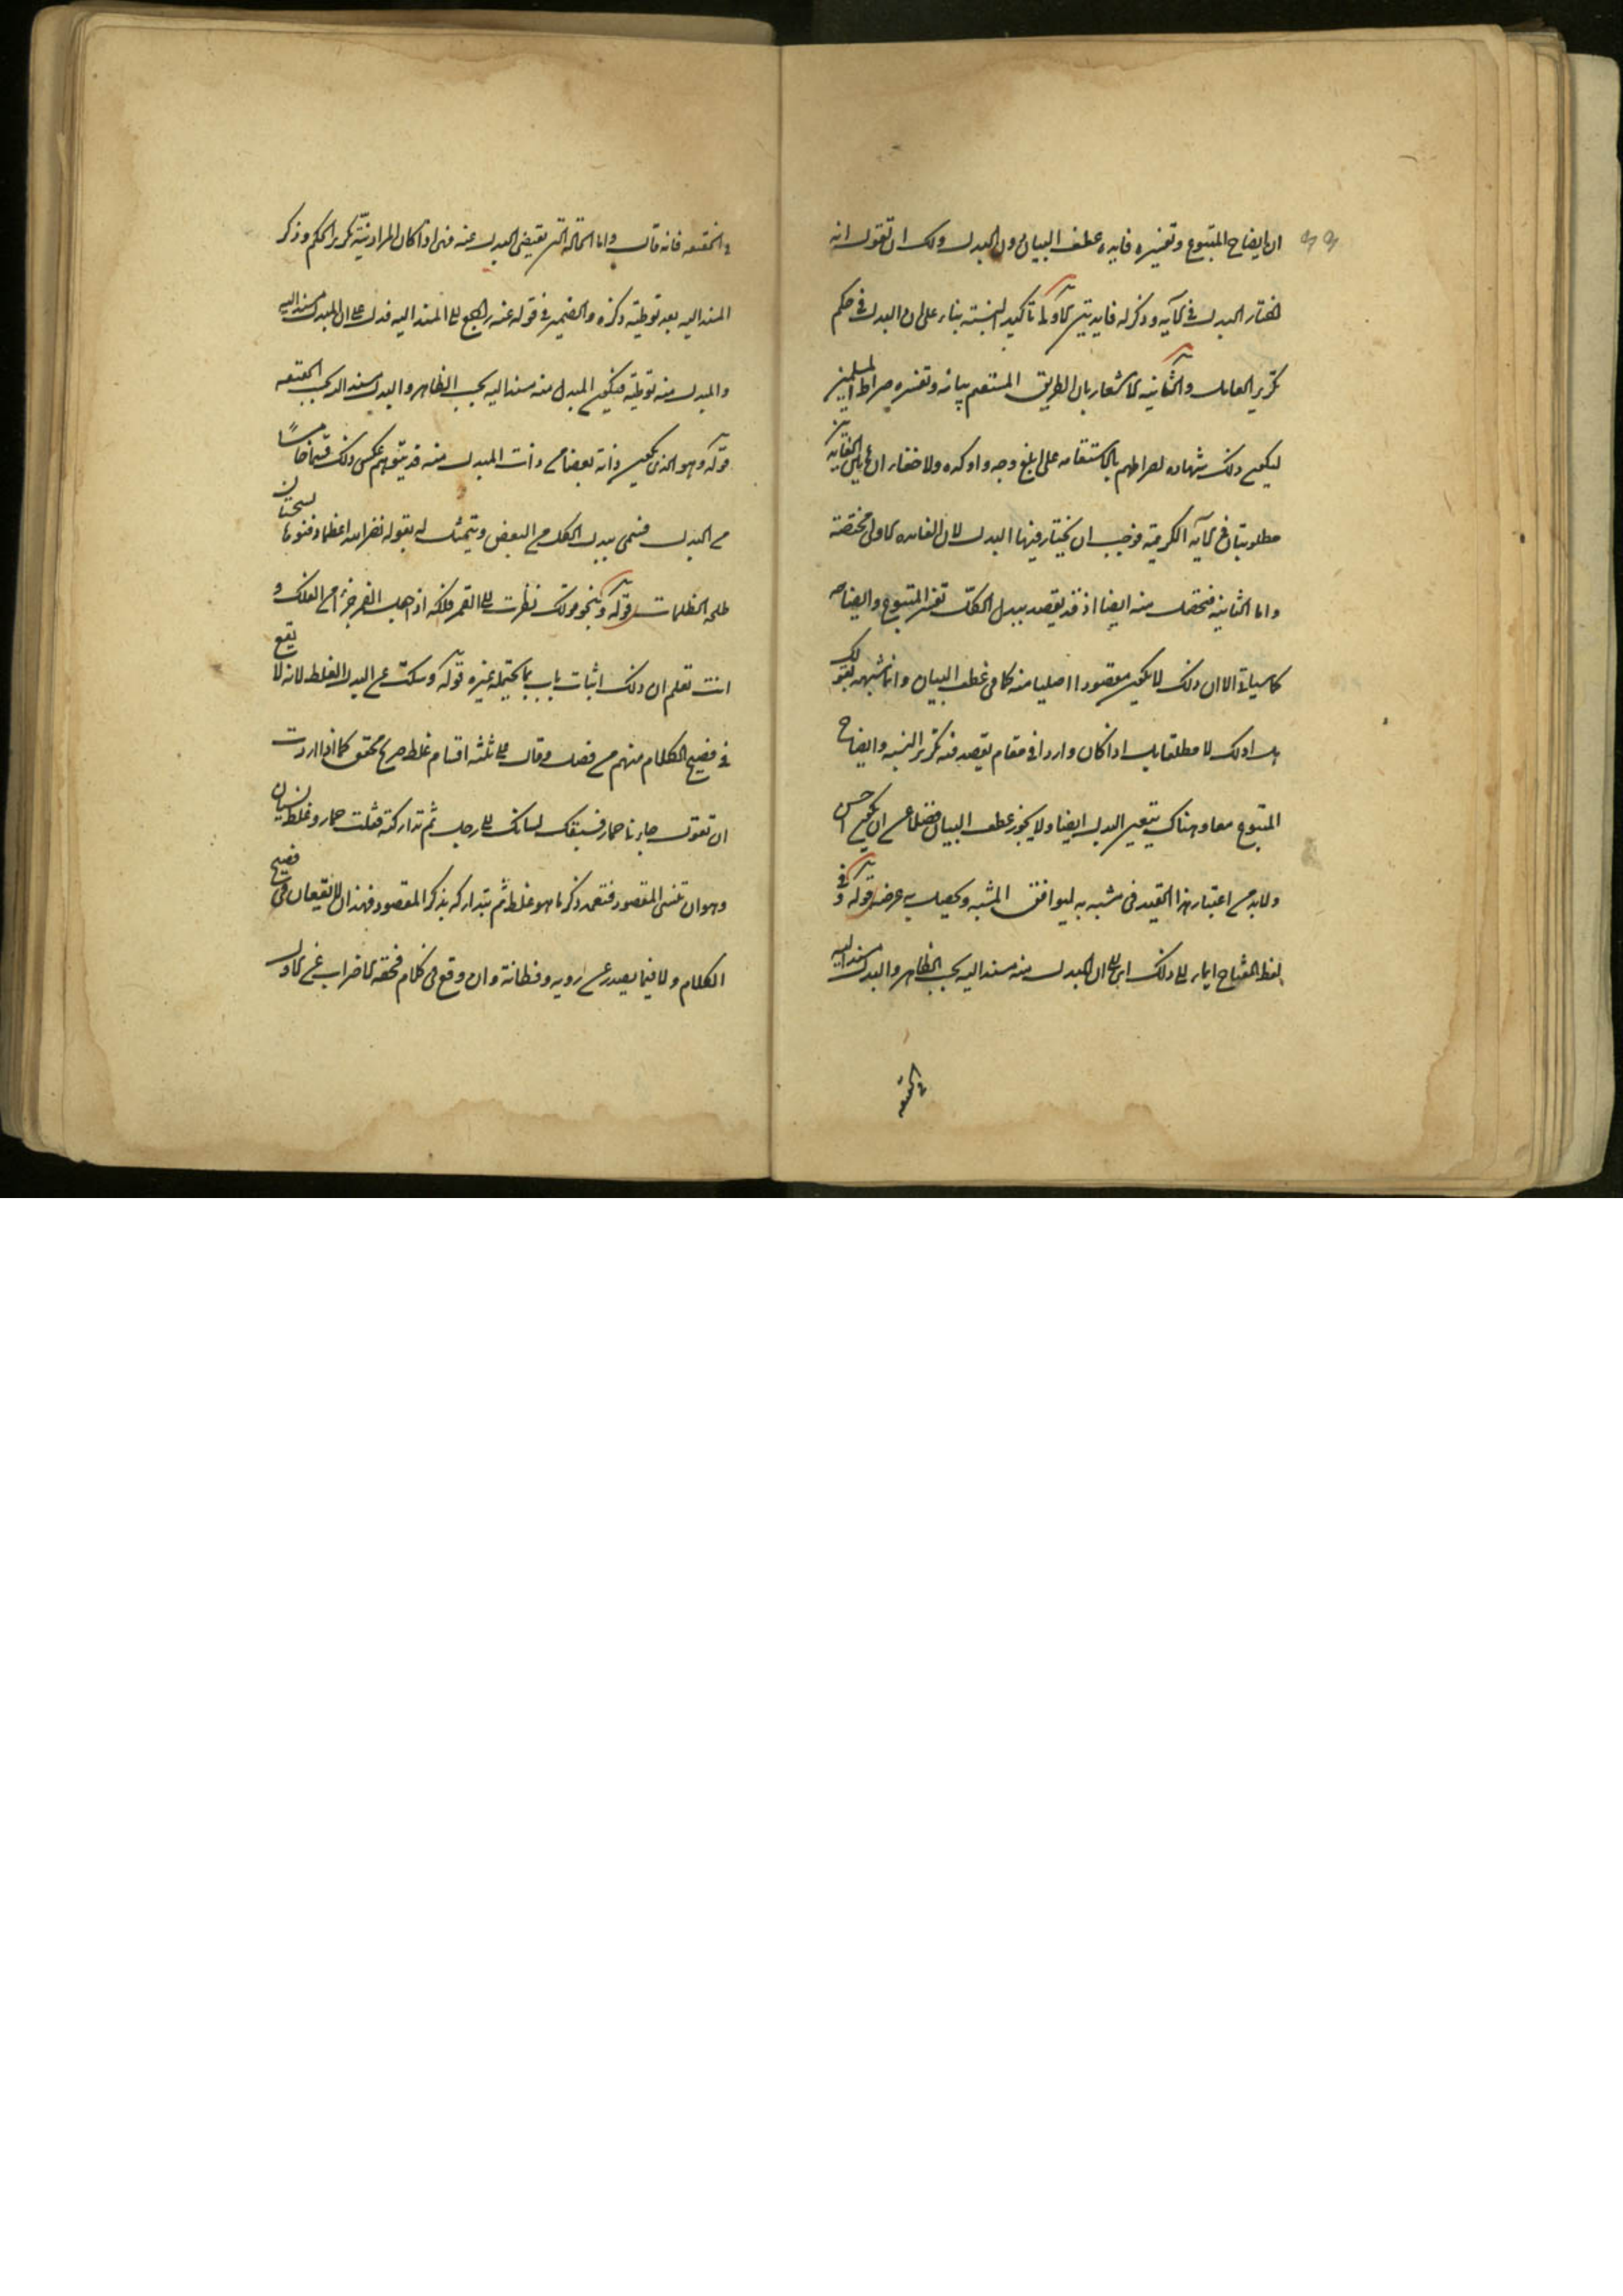 ان ايضاح المتبوع وتفسيره فايده عطف البيان دون البدل ولك ان تقول انه
اختار البدل في الآيه وذكر له فايدتين الاولى تاكيد النسبته بناء على ان البدل في حكم
تكرير العامل والثانيه الاشعار بان الطريق المستقيم بيانه وتفسيره صراط المسلمين
ليكون ذلك شهاده لصراطهم بالاستقامه على ابلغ وجه واوكده ولا خفاء ان هاتين الفايدتين
مطلوبتان في الآيه الكريمة فوجب ان يختار فيها البدل لان الفايده الاولى مختصة
واما الثانيه فتحصل منه ايضا اذ قد يقصد ببدل الكل تفسير المتبوع وايضاحه
كما سياتي الا ان ذلك لا يكون مقصودا اصليا منه كما في عطف البيان وانما شبهه بقولك
هل ادلك لا مطلقا بل اذا كان واردا في مقام يقصد فيه تكرير النسبه وايضاح
المتبوع معا وهناك يتعين البدل ايضا ولا يجوز عطف البيان فضلا عن ان يكون احسن
ولا بد من اعتبار هذا القيد في مشبه به ليوافق المشبه ويحصل به غرضه قوله وفي
لفظ المفتاح ايماء الى ذلك اي الى ان المبدل منه مسند اليه بحسب الظاهر والبدل مسند اليه
في الحقيقه
في الحقيقه فانه قال واما الحالة التي تقتضي البدل عنه فهي اذا كان المراد نية تكرير الحكم وذكر
المسند اليه بعد توطية ذكره والضمير في قوله عنه راجع الى المسند اليه فدل على ان المبدل مسند اليه
والمبدل منه توطية فيكون المبدل منه مسند اليه بحسب الظاهر والبدل مسند اليه بحسب الحقيقه
قوله وهو الذي يكون ذاته بعضا من ذات المبدل منه قد يتوهم عكس ذلك قسما خامسا
من البدل فسمى ببدل الكل من البعض ويتمثل له بقوله نضر الله اعظما دفنوها بسجستان
طلحه الطلحات قوله وبنحو قولك نظرت الى القمر فلكه اذ جعل القمر جزءا من الفلك و
انت تعلم ان ذلك اثبات باب بما يحتمله غيره قوله وسكت عن البدل الغلط لانه لا يقع
في فصيح الكلام منهم من فصل وقال على ثلثه اقسام غلط صريح محقق كما اذا اردت
ان تقول جاءنا حمار فسبقك لسانك الى رجل ثم تداركته فقلت حمار وغلط نسيان
وهو ان تنسى المقصود فتعمد ذكر ما هو غلط ثم تتداركه بذكر المقصود فهذان لا يقعان في فصيح
الكلام ولا فيما يصدر عن رويه وفطانة وان وقع في كلام فحقه الاضراب عن الاول